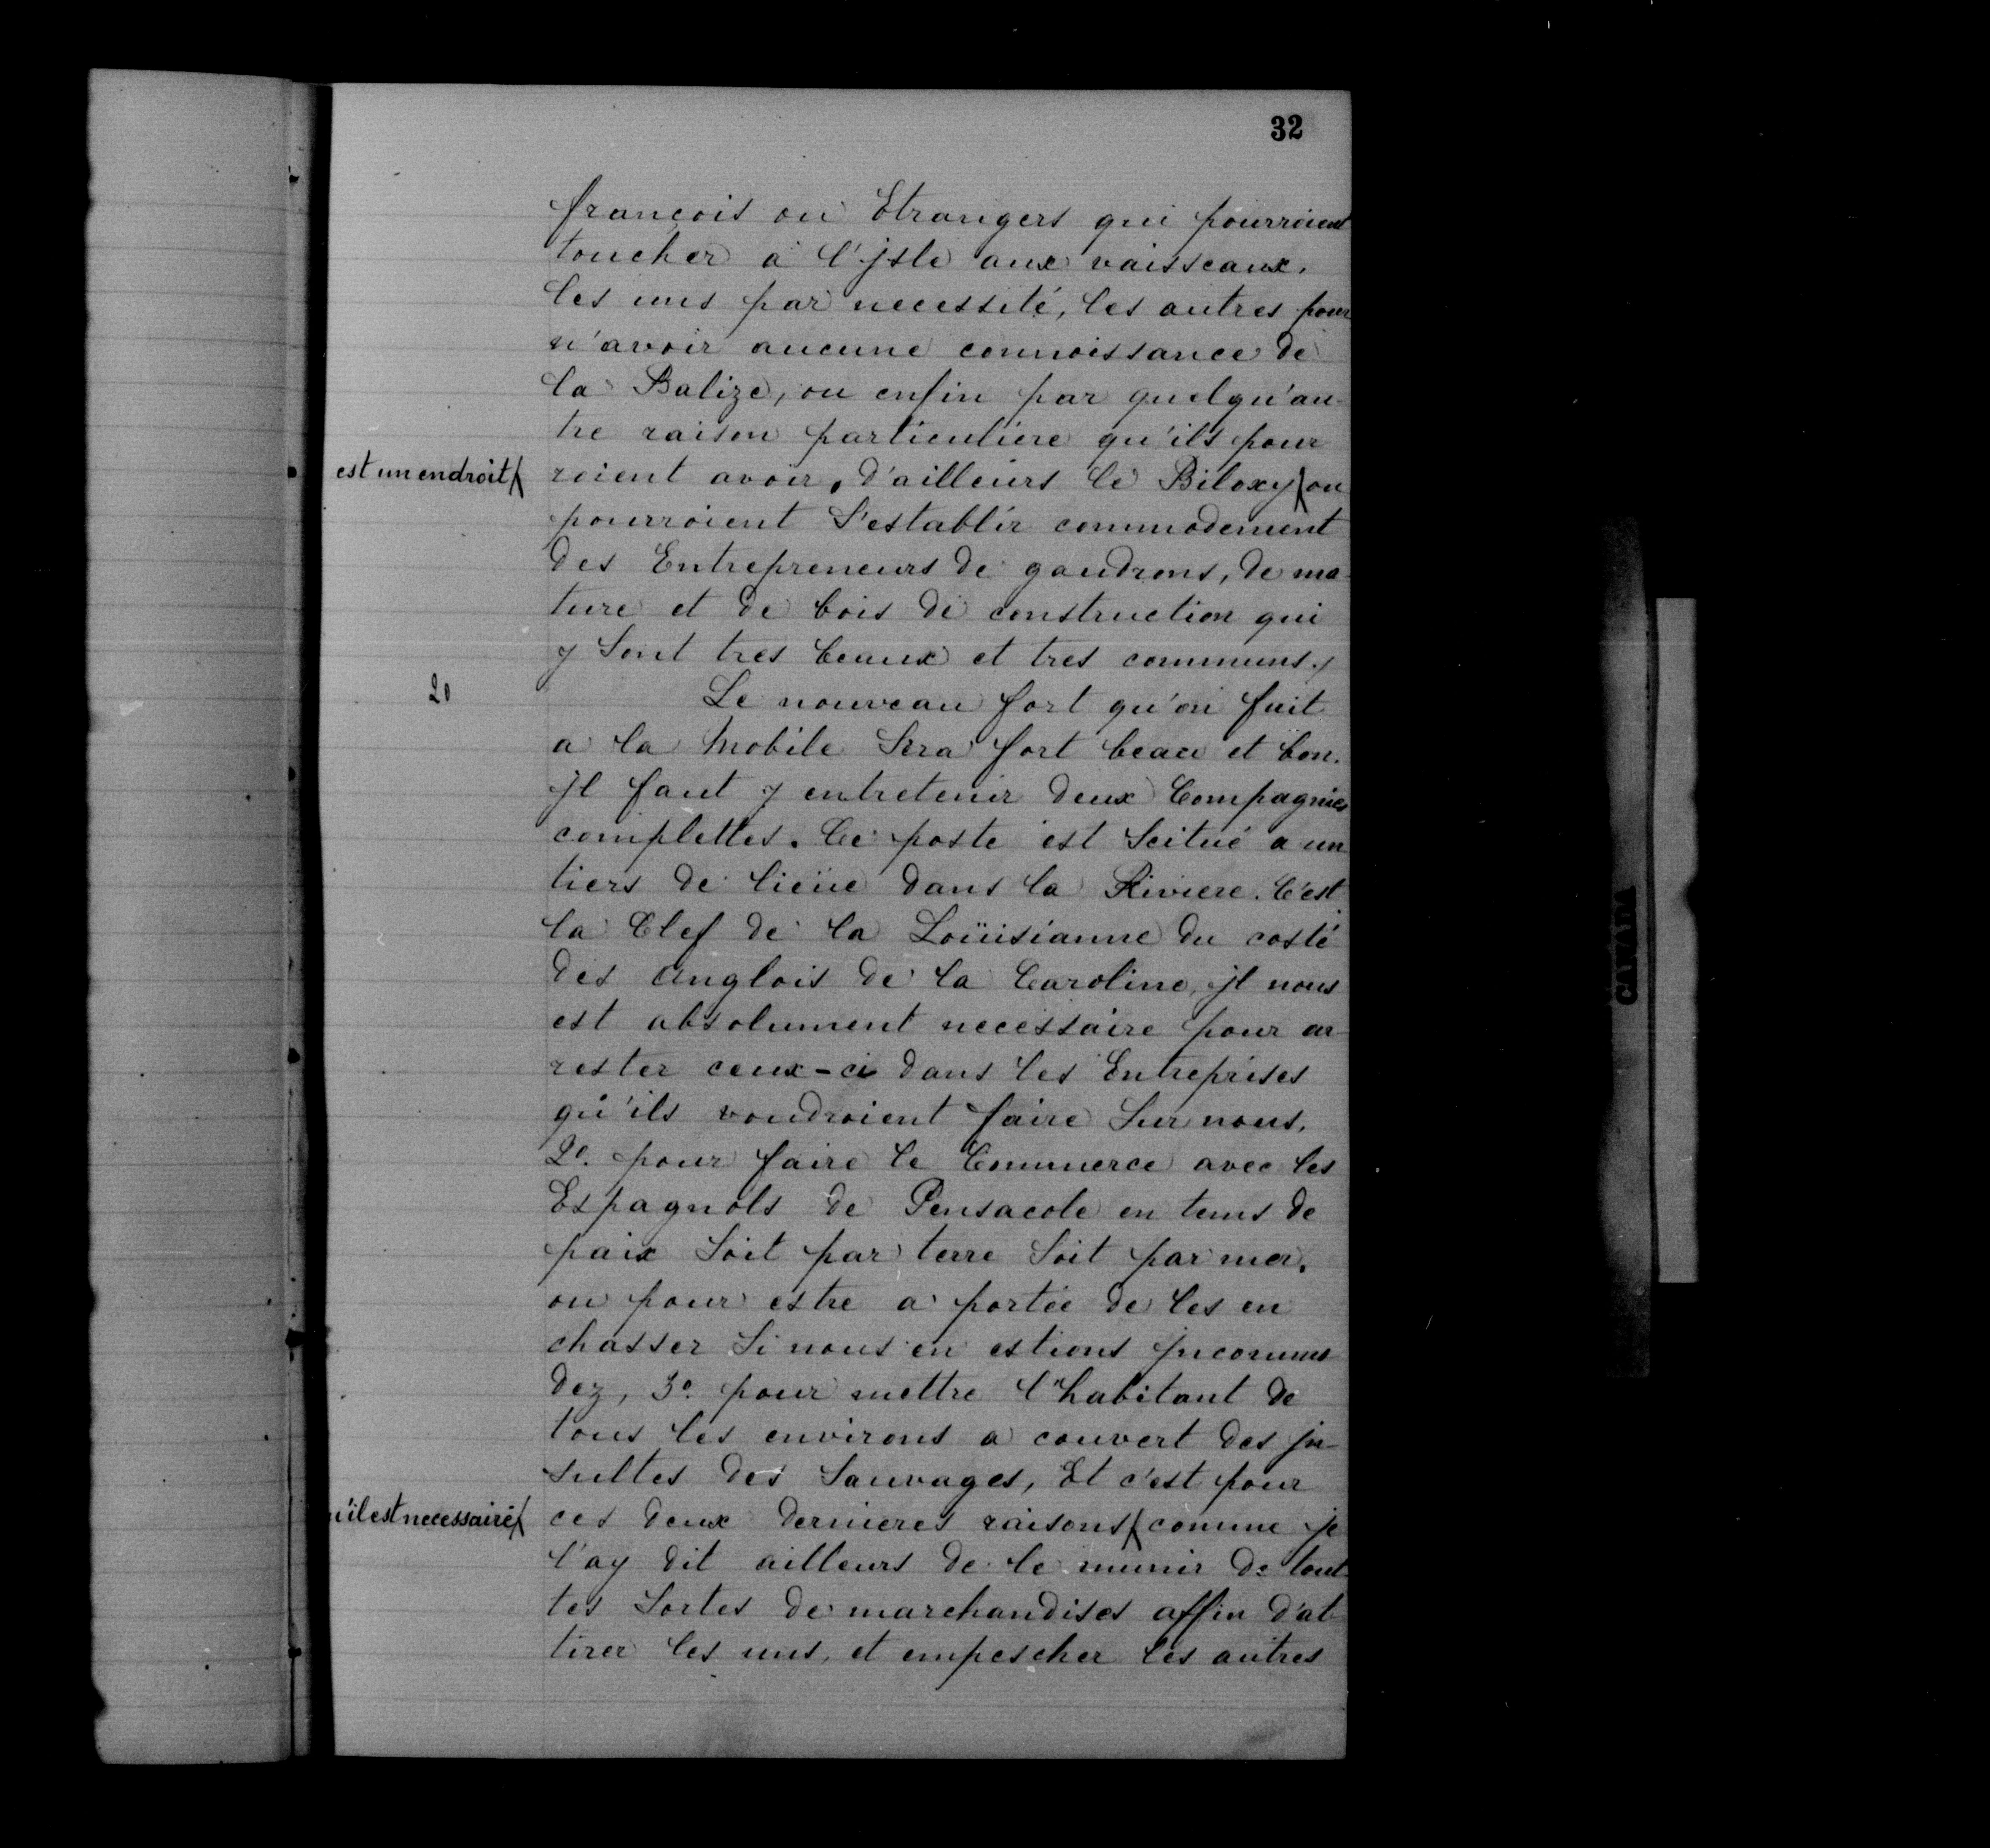 32
françois ou Etrangers qui pourroient
toucher a l'jsle aux vaisseaux,
les uns par necessité, les autres pour
n'avoir aucune connoissance de
la Balize, ou enfin par quelqu'au-
tre raison particuliere qu'ils pour
est un endroit/ roient avoir, d'ailleurs le Biloxy/ ou
pourroient s'establir commodement
des Entrepreneurs de gaudrons, de ma-
ture et de bois de construction qui
y sont tres beaux et tres communs./
20 Le nouveau fort qu'on fait
a la Mobile sera fort beau et bon.
jl faut y entretenir deux Compagnies
complettes. Ce poste est scitué a un
tiers de lieüe dans la Riviere. C'est
la Clef de la Loüisianne du costé
des anglois de la Caroline, jl nous
est absolument necessaire pour ar-
rester ceux-ci dans les Entreprises
qu'ils voudroient faire sur nous.
2º. pour faire le Commerce avec les
Espagnols de Pensacole en tems de
paix soit par terre soit par mer,
ou pour estre a portée de les en
chasser si nous en estions jncommo-
dez, 3º. pour mettre l'habitant de
tous les environs a couvert des jn-
sultes des Sauvages, Et c'est pour
u'il est necessaire/ ces deux dernieres raisons/ comme je
l'ay dit ailleurs de le munir de tout-
tes sortes de marchandises affin d'at-
tirer les uns, et empescher les autres
CANADA